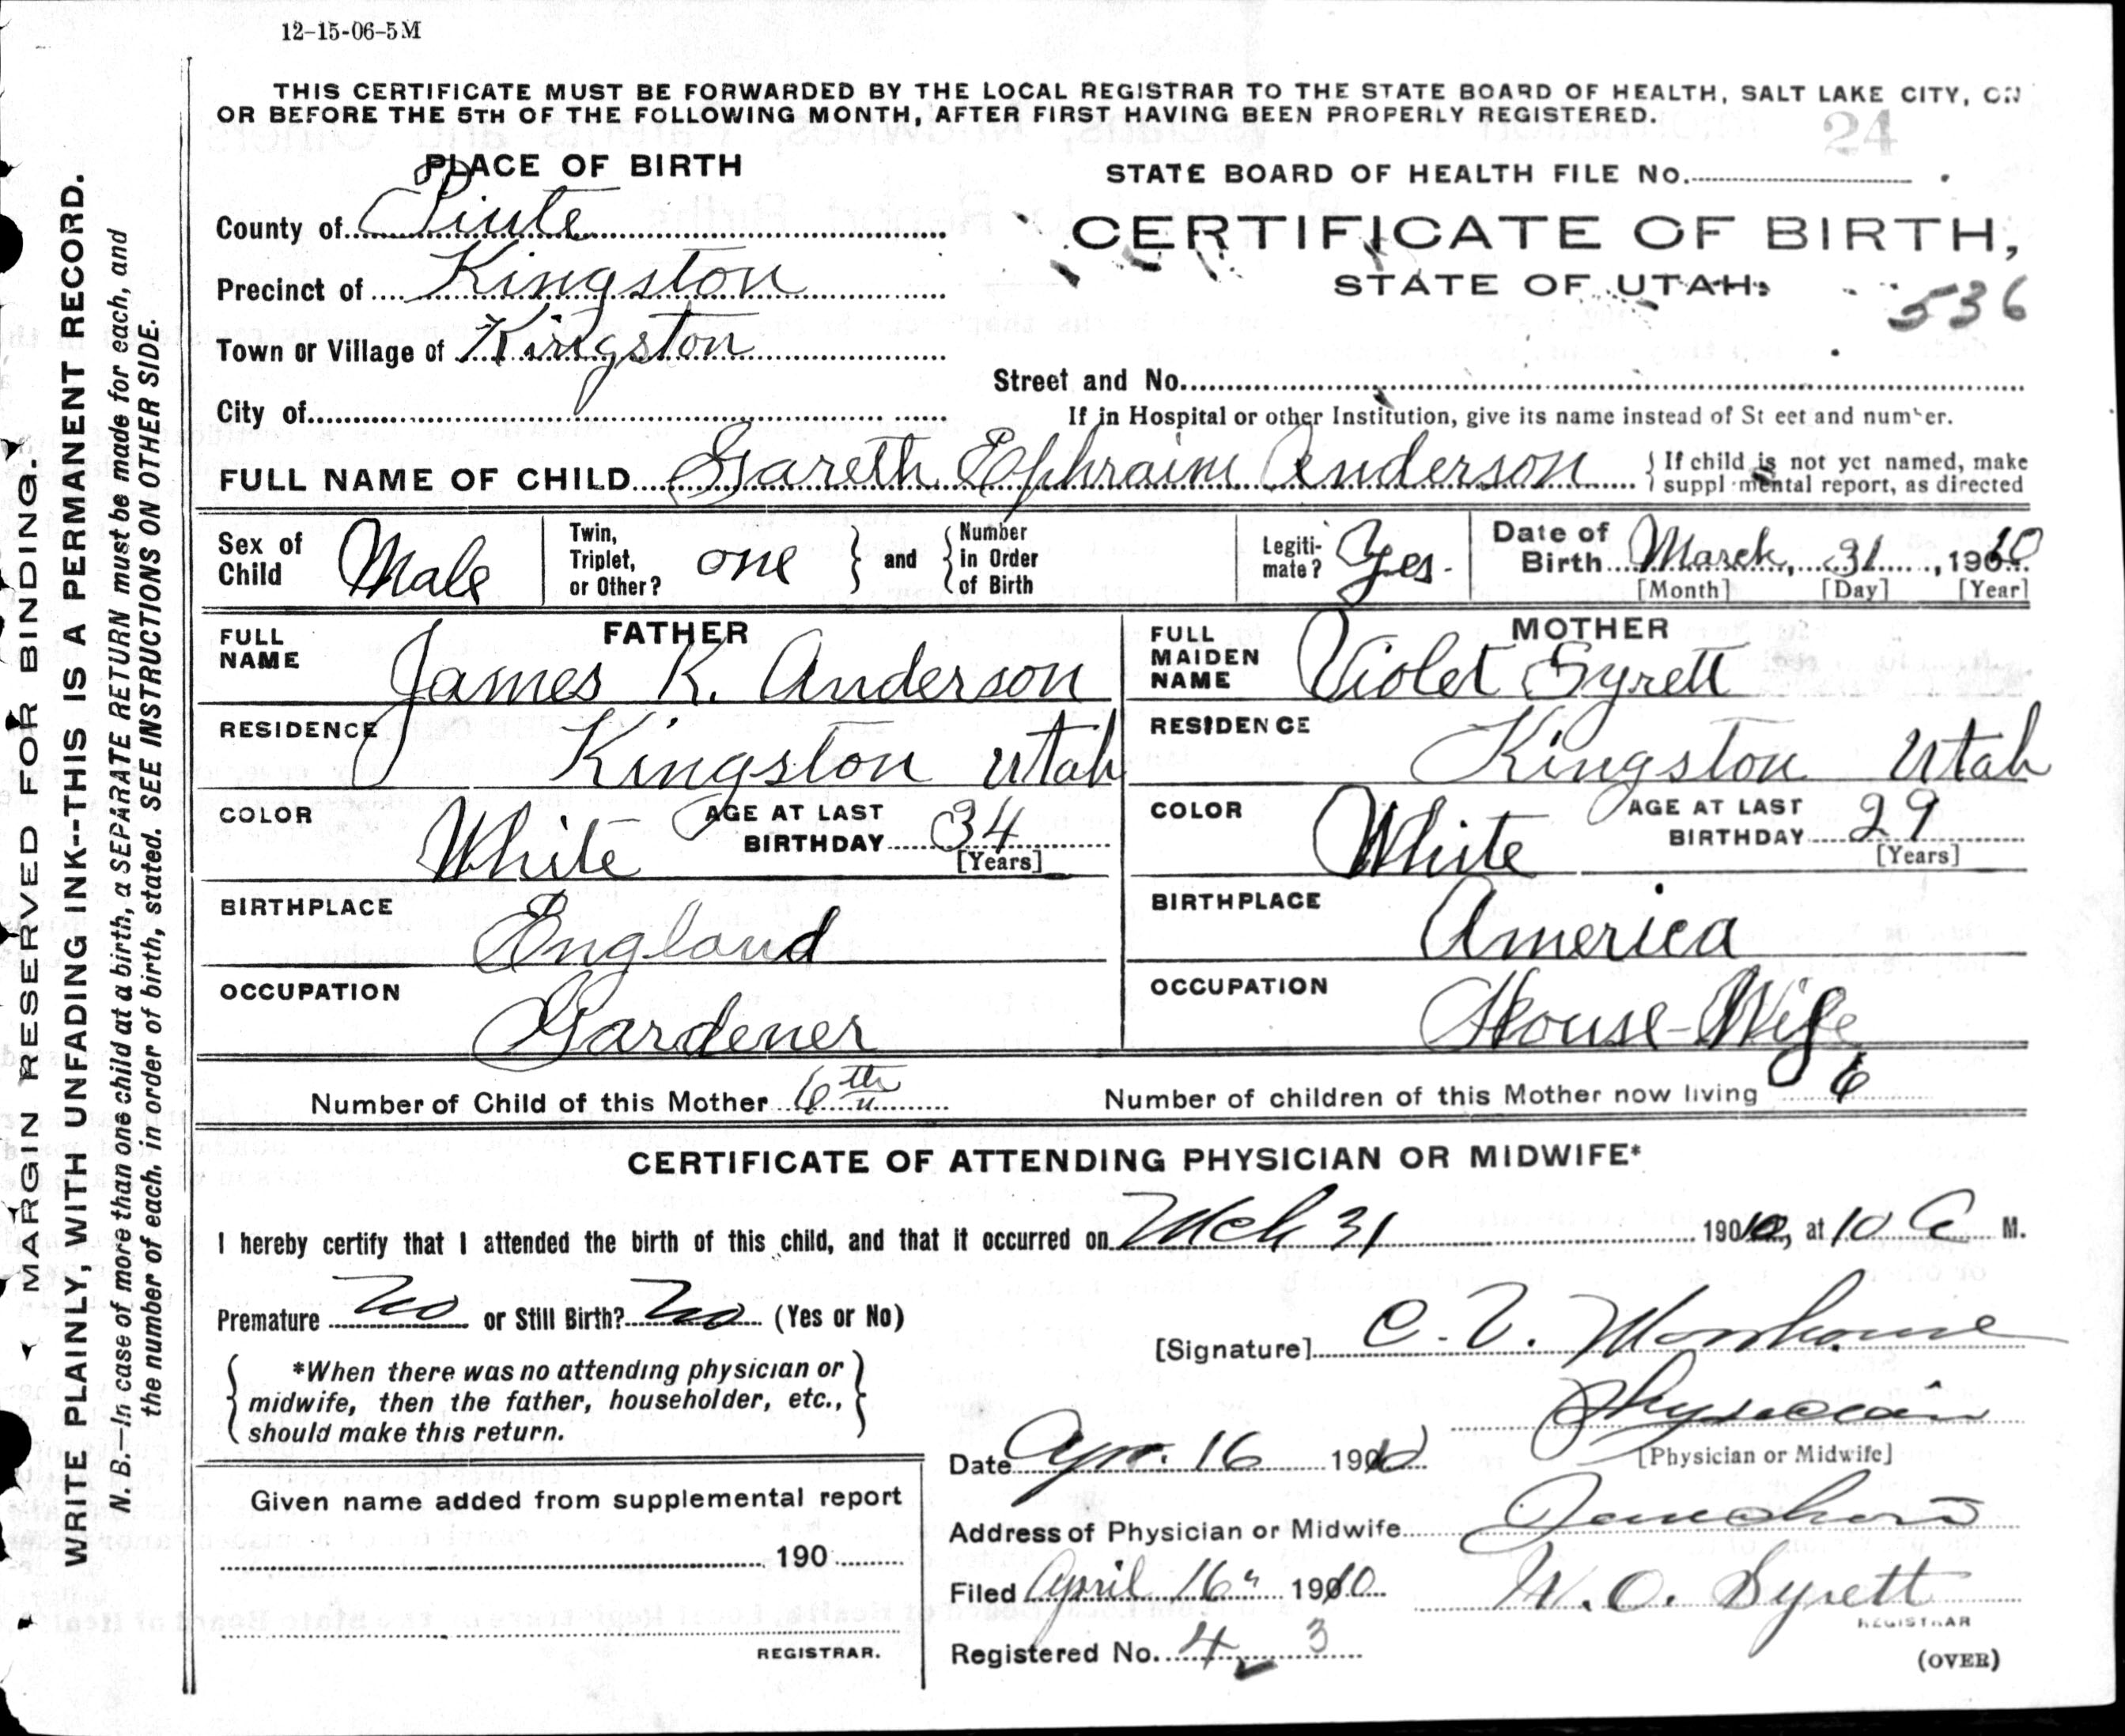 12-15-06-5M
THIS CERTIFICATE MUST BE FORWARDED BY THE LOCAL REGISTRAR TO THE STATE BOARD OF HEALTH, SALT LAKE CITY, ON
OR BEFORE THE 5TH OF THE FOLLOWING MONTH, AFTER FIRST HAVING BEEN PROPERLY REGISTERED.
24
PLACE OF BIRTH
County of Piute
Precinct of Kingston
Town or Village of Kingston
City of
STATE BOARD OF HEALTH FILE No.
CERTIFICATE OF BIRTH,
STATE OF UTAH.
536
Street and No.
If in Hospital or other Institution, give its name instead of St eet and num er.
FULL NAME OF CHILD Gareth Ephraim Anderson
If child is not yet named, make
suppl mental report, as directed
Sex of Child Male
Twin, Triplet, or Other? one and Number in Order of Birth
Legiti-mate? Yes.
Date of Birth March, 31, 1910
[Month] [Day] [Year]
FATHER
FULL NAME James K. Anderson
RESIDENCE Kingston Utah
COLOR White AGE AT LAST BIRTHDAY 34
[Years]
BIRTHPLACE England
OCCUPATION Gardener
MOTHER
FULL MAIDEN NAME Violet Syrett
RESIDENCE Kingston Utah
COLOR White AGE AT LAST BIRTHDAY 29
[Years]
BIRTHPLACE America
OCCUPATION House-Wife
Number of Child of this Mother 6th
Number of children of this Mother now living 6
CERTIFICATE OF ATTENDING PHYSICIAN OR MIDWIFE*
I hereby certify that I attended the birth of this child, and that it occurred on Mch 31 1910, at 10 A M.
Premature No or Still Birth? No (Yes or No)
*When there was no attending physician or
midwife, then the father, householder, etc.,
should make this return.
[Signature] C. V.
Physician
[Physician or Midwife]
Date Apr. 16 1910
Address of Physician or Midwife Junction
Filed April 16" 1910 W. O. Syrett
REGISTRAR
Registered No. 4 3
(OVER)
Given name added from supplemental report
190
REGISTRAR.
MARGIN RESERVED FOR BINDING.
WRITE PLAINLY, WITH UNFADING INK--THIS IS A PERMANENT RECORD.
N. B.—In case of more than one child at a birth, a SEPARATE RETURN must be made for each, and
the number of each, in order of birth, stated. SEE INSTRUCTIONS ON OTHER SIDE.